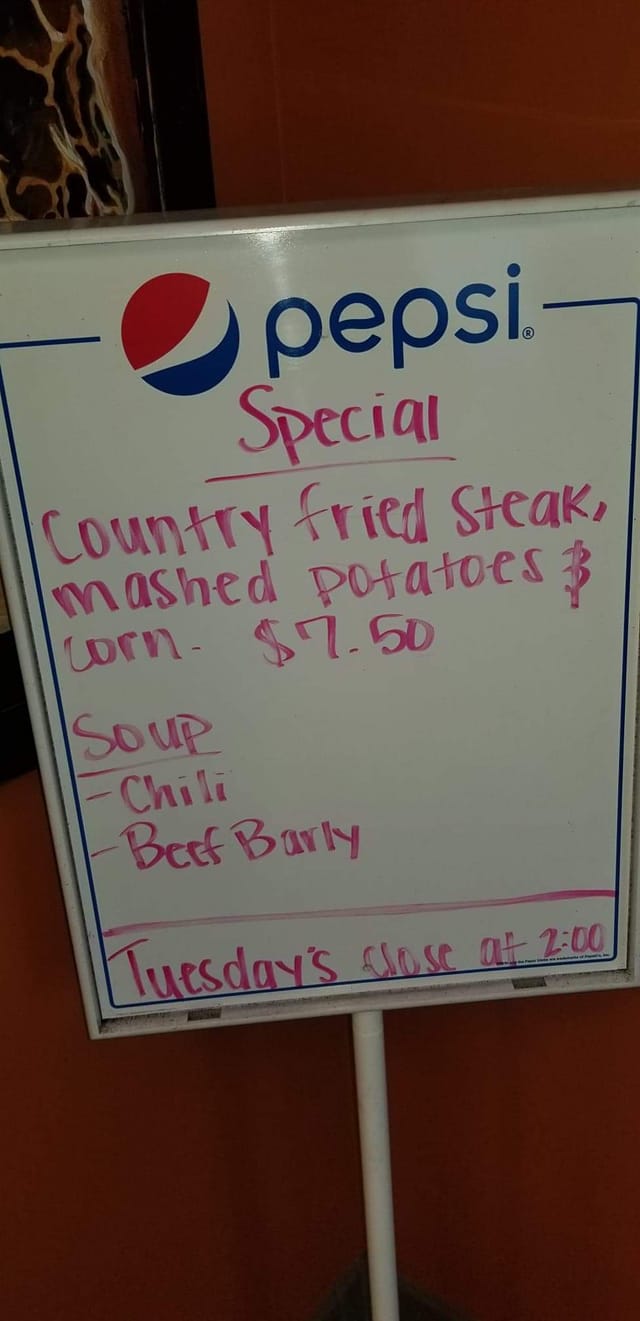 pepsi®
Special
Country fried steak,
mashed potatoes &
corn. $7.50
Soup
- Chili
- Beef Barly
Tuesday's close at 2:00